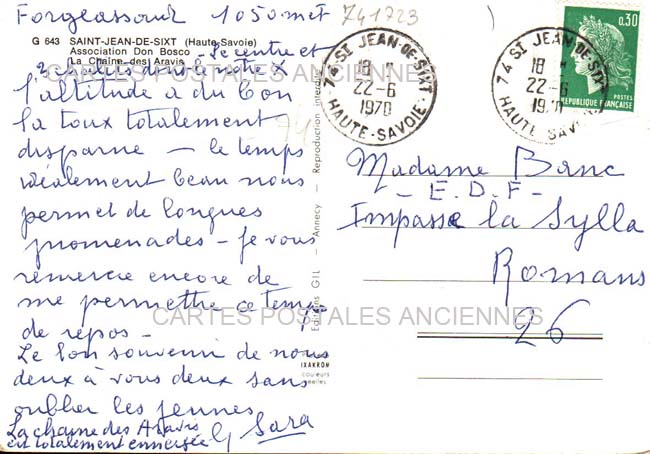 Forgeassoud 1050 met 741723
G 643 SAINT-JEAN-DE-SIXT (Haute-Savoie)
Association Don Bosco
La Chaine des Aravis
Je rentre et
l'altitude a du bon
la toux totalement
disparue — le temps
idéalement beau nous
permet de longues
promenades — Je vous
remercie encore de
me permettre ce temps
de repos —
Le bon souvenir de nous
deux à vous deux sans
oublier les jeunes
G Sara
La chaine des Aravis
est totalement enneigée
Editions GIL - Annecy - Reproduction interdite
IXAKROM
couleurs
74 ST JEAN-DE-SIXT
18 H
22-6
1970
HAUTE-SAVOIE
74 ST JEAN-DE-SIXT
18 H
22-6
19
HAUTE SAV
0,30
POSTES
REPUBLIQUE FRANÇAISE
Madame Banc
- E.D.F -
Impasse la Sylla
Romans
26
CARTES POSTALES ANCIENNES
CARTES POSTALES ANCIENNES